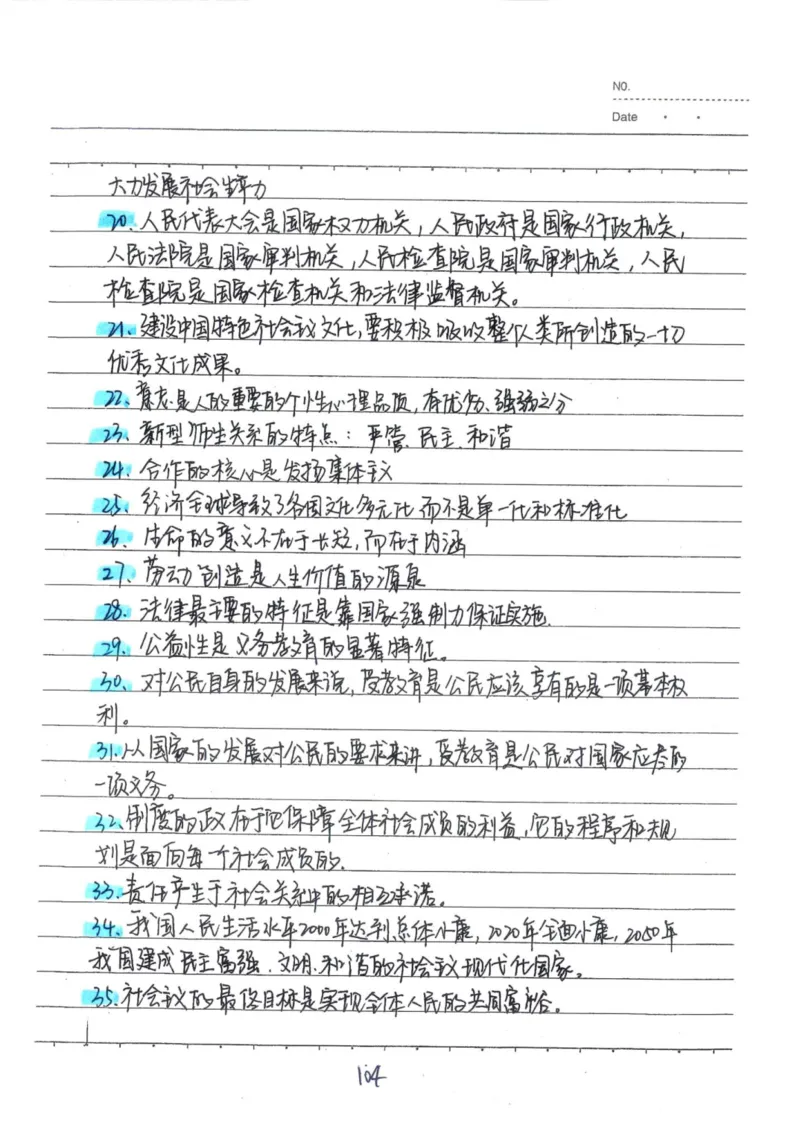 NO.
Date
大力发展社会生产力
20、人民代表大会是国家权力机关，人民政府是国家行政机关，
人民法院是国家审判机关，人民检查院是国家审判机关，人民
检查院是国家检查机关和法律监督机关。
21、建设中国特色社会主义文化，要积极吸收整个人类所创造的一切
优秀文化成果。
22、意志是人的重要的个性心理品质，有优劣、强弱之分
23、新型师生关系的特点：严管、民主、和谐
24、合作的核心是发扬集体主义
25、经济全球导致了各国文化多元化而不是单一化和标准化
26、生命的意义不在于长短，而在于内涵
27、劳动创造是人生价值的源泉
28、法律最主要的特征是靠国家强制力保证实施.
29、公益性是义务教育的显著特征。
30、对公民自身的发展来说，受教育是公民应该享有的是一项基本权
利。
31、从国家的发展对公民的要求来讲，受教育是公民对国家应尽的
一项义务。
32、制度的政在于它保障全体社会成员的利益，它的程序和规
划是面向每一个社会成员的.
33、责任产生于社会关系中的相互承诺。
34、我国人民生活水平2000年达到总体小康，2020年全面小康，2050年
我国建成民主富强、文明、和谐的社会主义现代化国家。
35、社会主义的最终目标是实现全体人民的共同富裕。
104